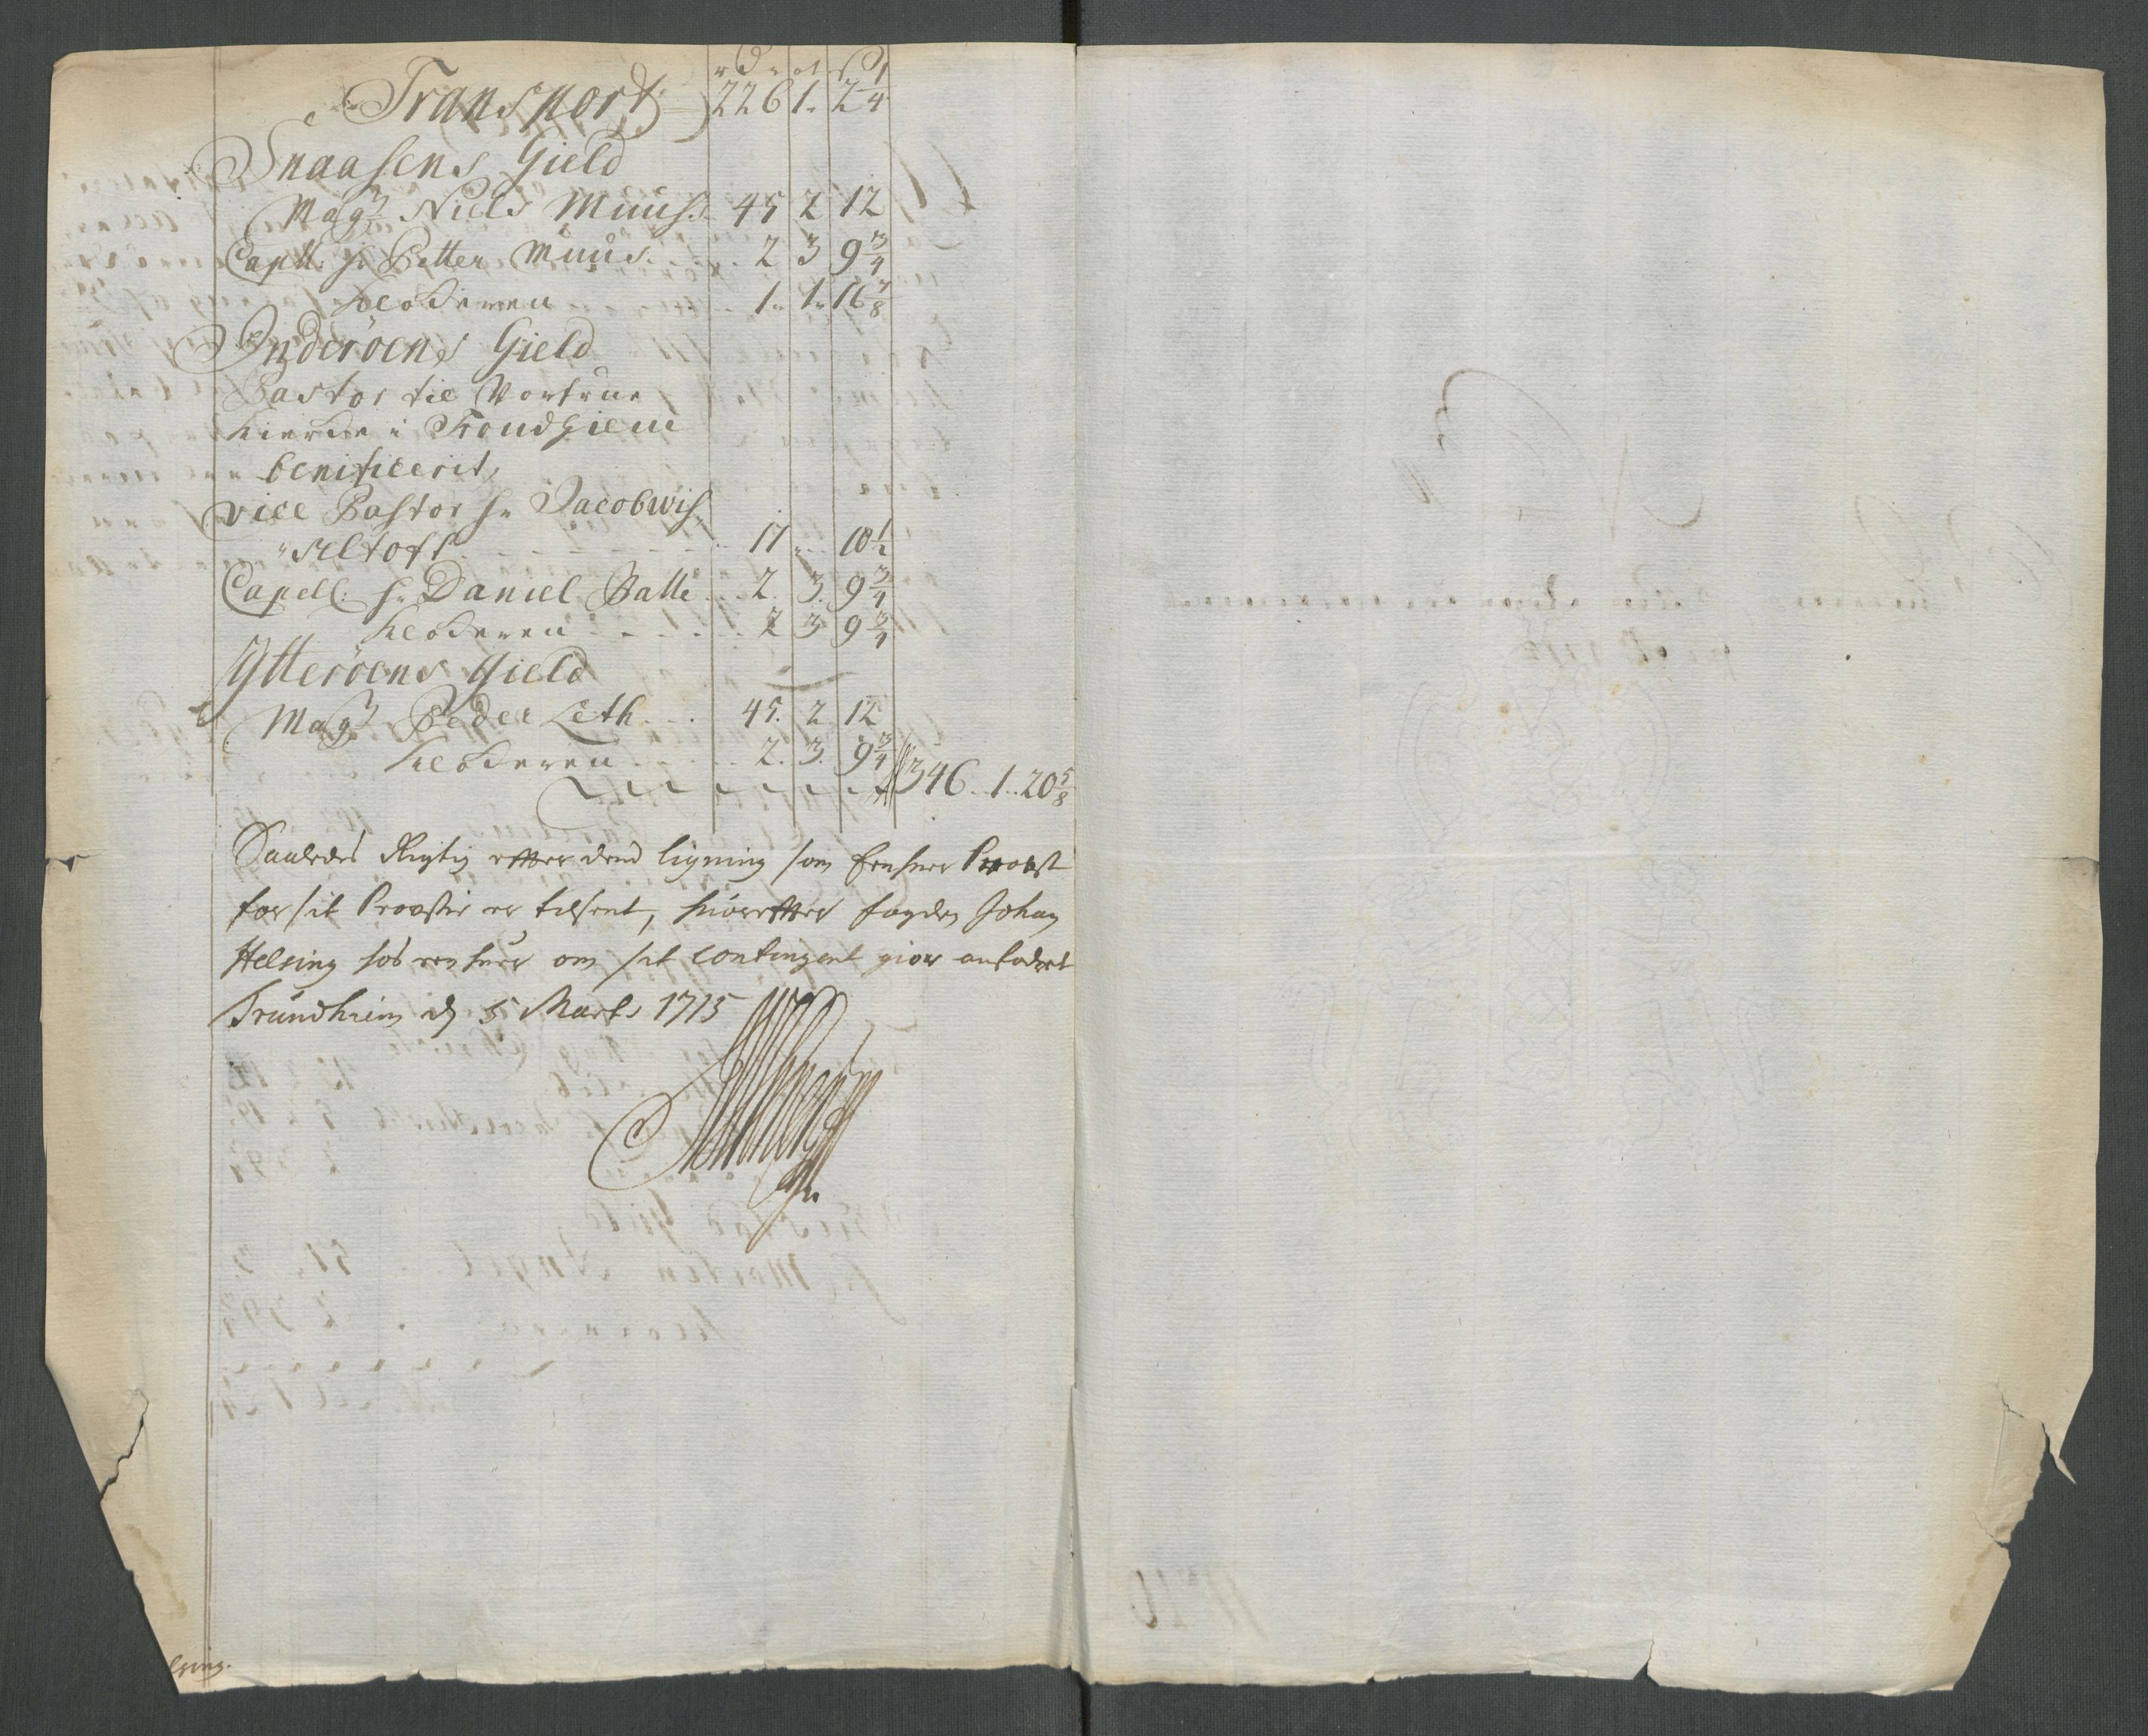 rd ort s
Transport 226 1 2 1/4
Snaasens Gield
Magr Niels Muus 45 2 12
Capell: hr Petter Muus 2 3 9 3/4
Klockeren 1 1 16 7/8
Inderöens Gield
Pastor til Vorfrue
Kierke i Trondhiem
benificerit,
vice Pastor hr Jacob
Seltoft 17 " 10 1/2
Capell: hr Daniel Balle 2 3 9 3/4
Klockeren 2 3 9 3/4
Ytteröens Gield
Magr Peder Leth 45 2 12
Klockeren 2 3 9 3/4
346 1 20 5/8
Saaledes Rigtig efter dend ligning som Enhver Provst
for sit Provstie er tilsent, hvorefter fogden Johan
Helsing hos enhver om sit contingent giør anfodret
Trundhiem d 5 Marts 1715